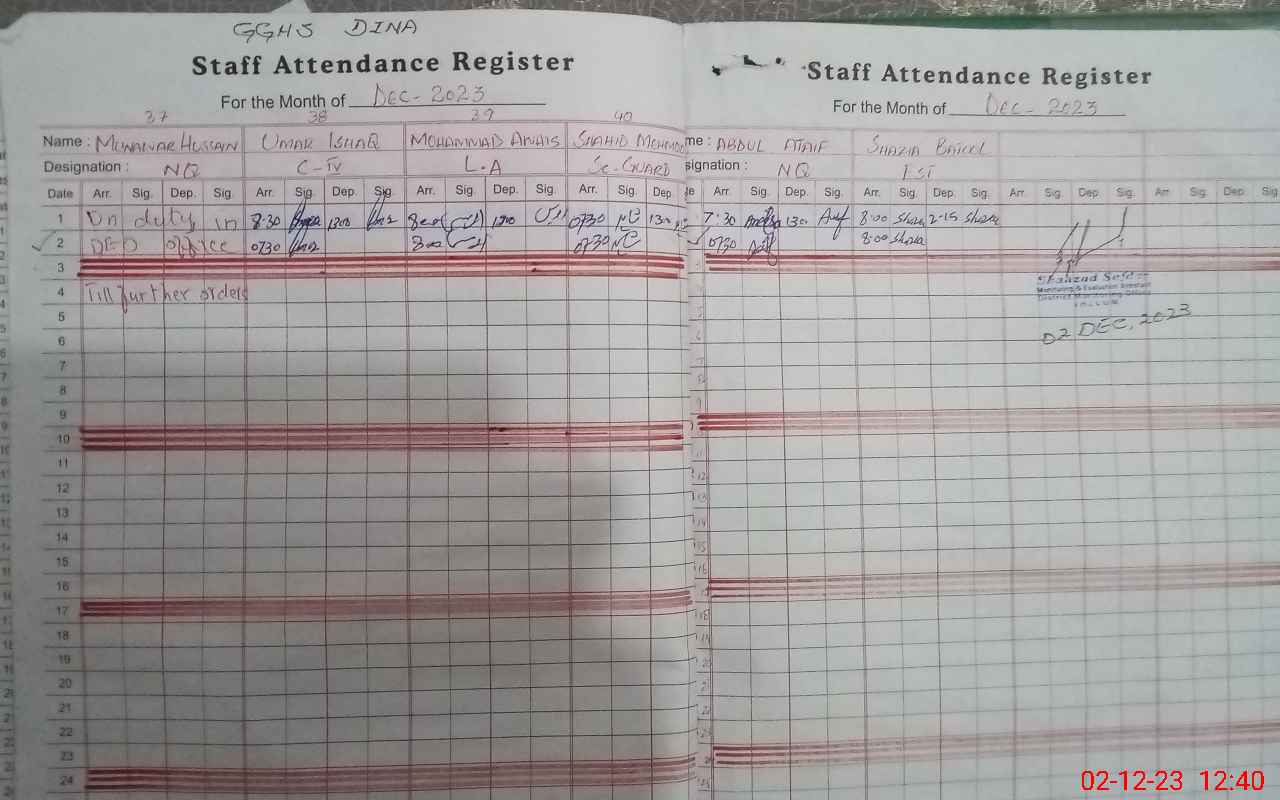 GGHS DINA
Staff Attendance Register
For the Month of Dec-2023
37 38 39 40
Name : MUNAWAR HUSSAIN UMAR ISHAQ MOHAMMAD AWAIS SHAHID MEHMOO
Designation : NQ C-IV L.A Sc. GUARD
Date Arr. Sig. Dep. Sig. Arr. Sig. Dep. Sig. Arr. Sig. Dep. Sig. Arr. Sig. Dep.
1 On duty in 8:30 1300 1300 0730 1300
2 DEO office 0730 0730
3
4 Till further orders
5
6
7
8
9
10
11
12
13
14
15
16
17
18
19
20
21
22
23
24
Staff Attendance Register
For the Month of Dec-2023
me : ABDUL ATAIF SHAZIA
signation : NQ EST
te Arr. Sig. Dep. Sig. Arr. Sig. Dep. Sig. Arr. Sig. Dep Sig. Arr. Sig. Dep Sig
7:30 130 8:00 Shazia 2-15 Shazia
0730 8:00 Shazia
Shahzad
Monitoring & Evaluation Assistant
District Monitoring Officer
JHELUM
02 DEC, 2023
02-12-23 12:40